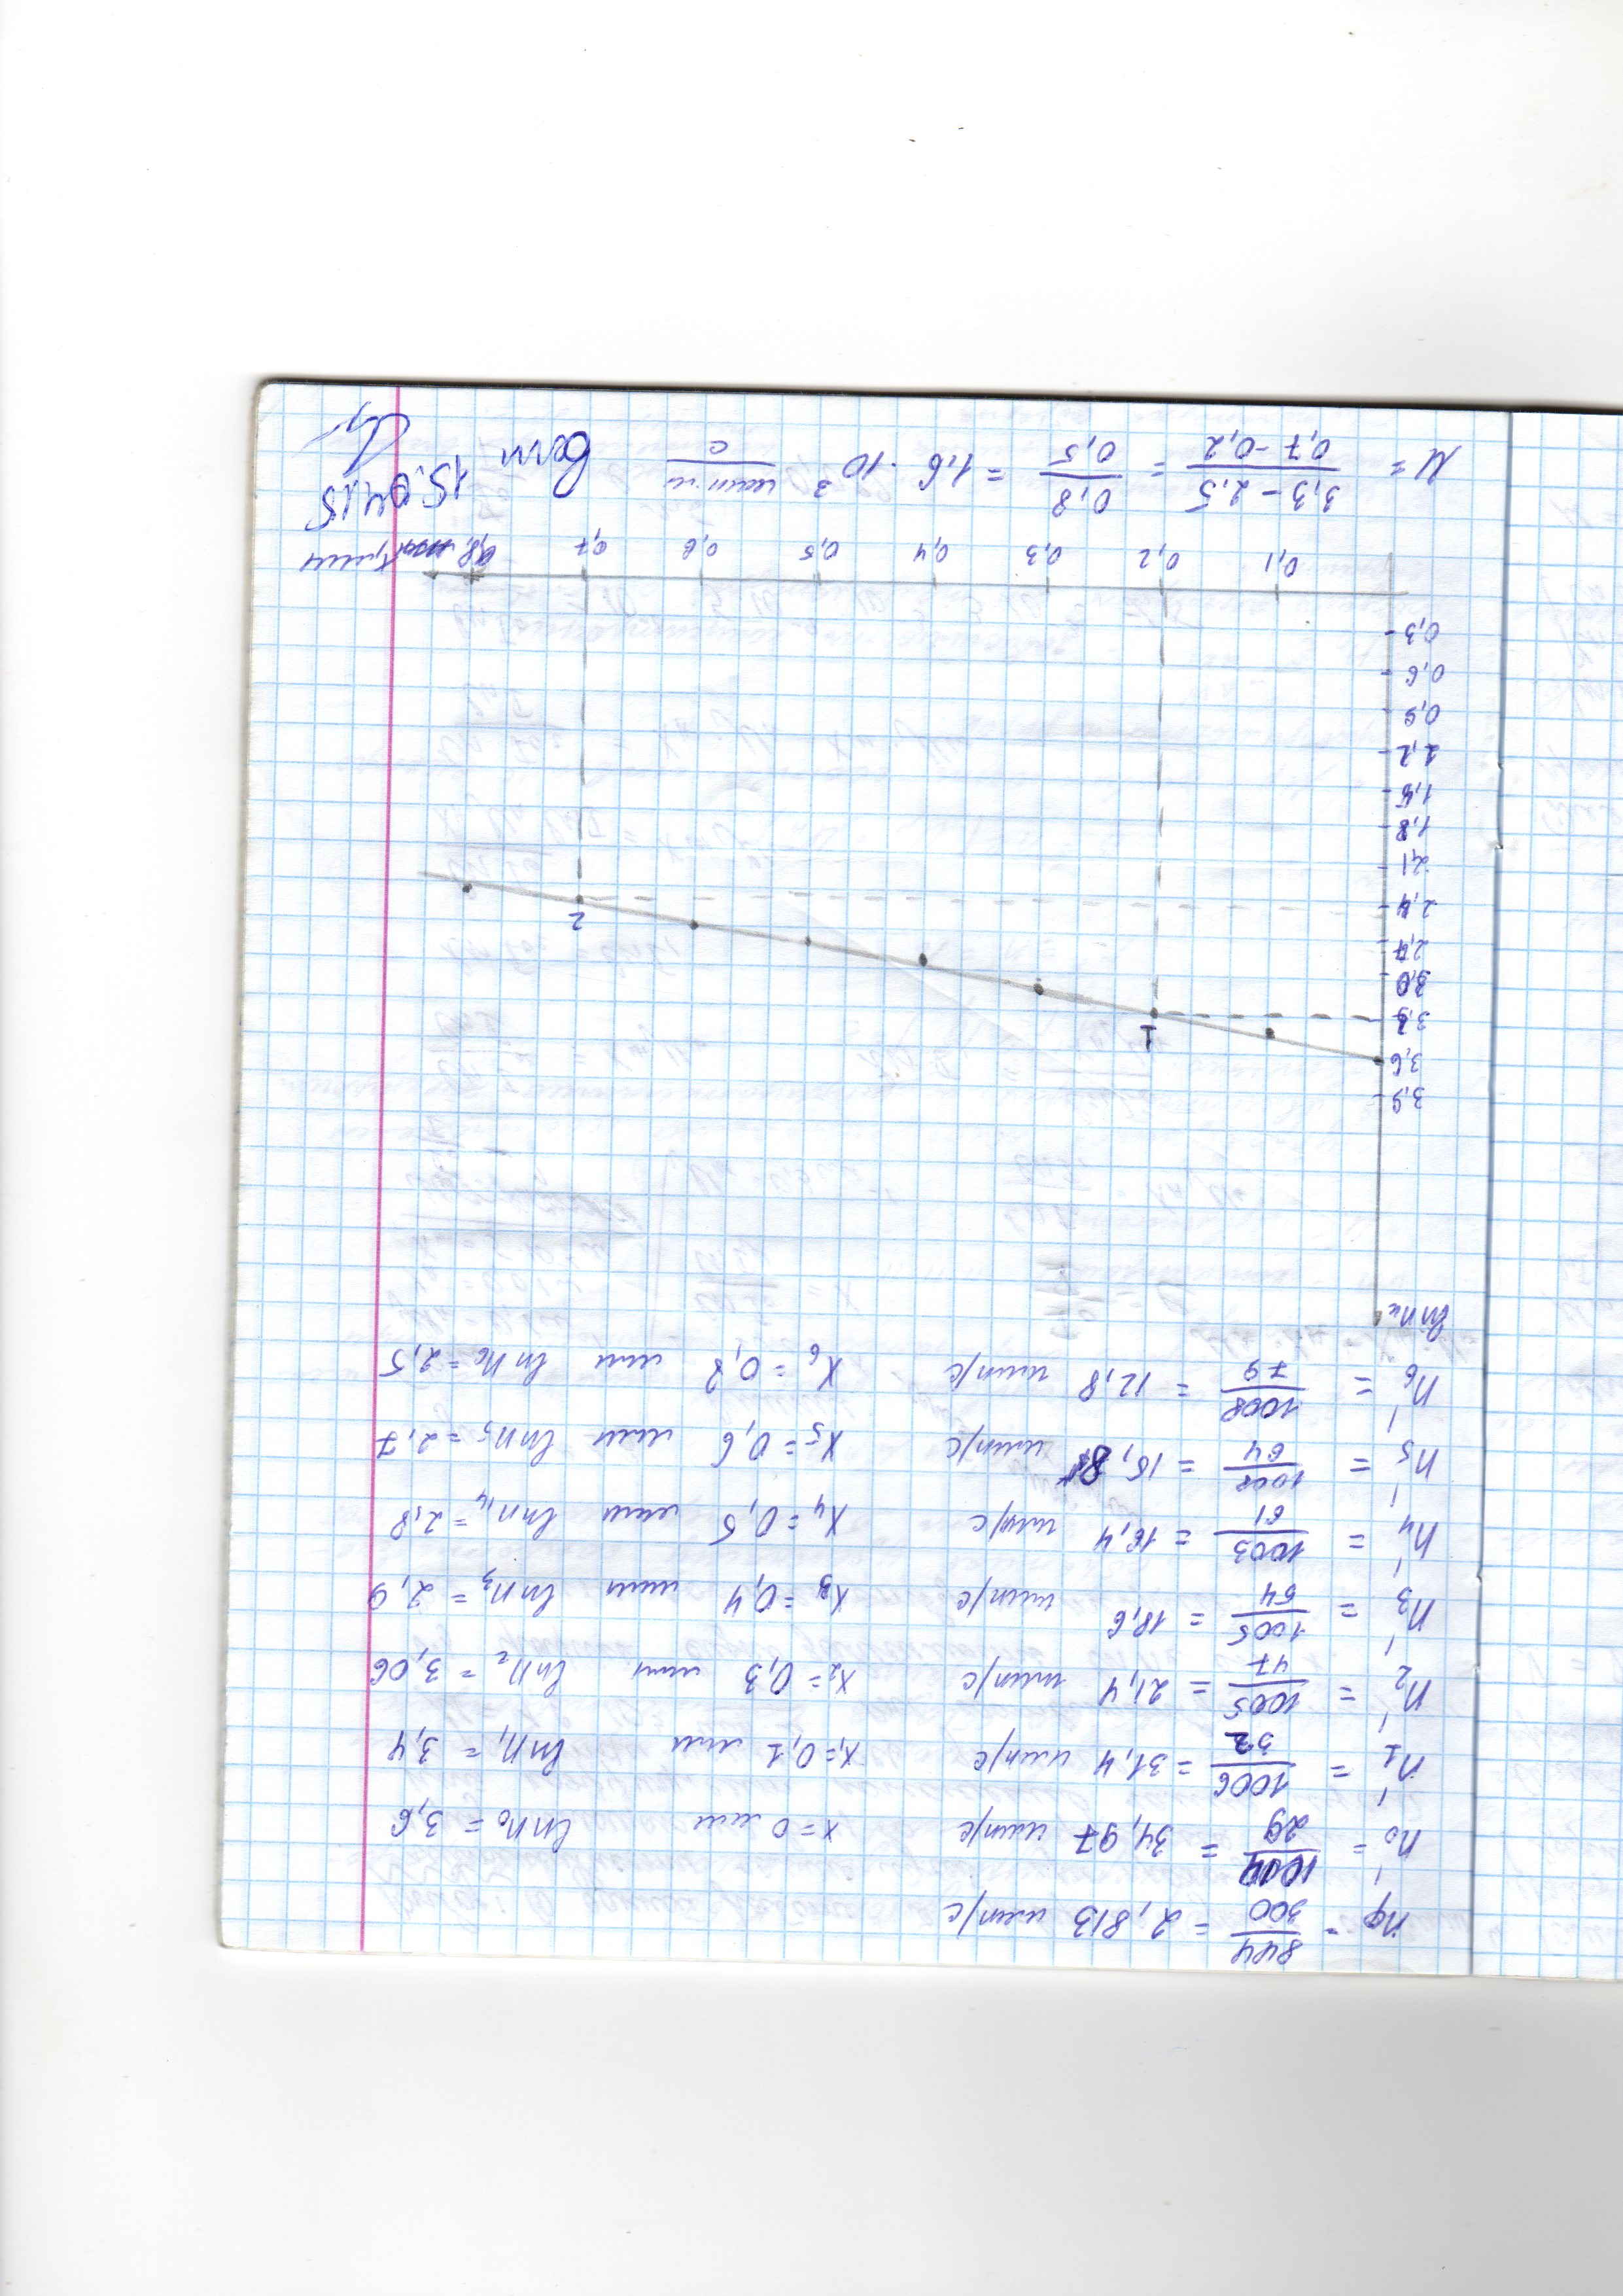 nф = 844/300 = 2,813 имп/с
n₀' = 1014/29 = 34,97 имп/с x = 0 мм ln n₀ = 3,6
n₁' = 1006/32 = 31,4 имп/с x₁ = 0,1 мм ln n₁ = 3,4
n₂' = 1005/47 = 21,4 имп/с x₂ = 0,3 мм ln n₂ = 3,06
n₃' = 1005/54 = 18,6 имп/с x₃ = 0,4 мм ln n₃ = 2,9
n₄' = 1003/61 = 16,4 имп/с x₄ = 0,5 мм ln n₄ = 2,8
n₅' = 1008/64 = 15,8 имп/с x₅ = 0,6 мм ln n₅ = 2,7
n₆' = 1008/79 = 12,8 имп/с x₆ = 0,8 мм ln n₆ = 2,5
ln nк
3,9
3,6
1
3,3
3,0
2,7
2
2,4
2,1
1,8
1,5
1,2
0,9
0,6
0,3
0,1 0,2 0,3 0,4 0,5 0,6 0,7 0,8 x, мм
M = 3,3 - 2,5 / 0,7 - 0,2 = 0,8/0,5 = 1,6 · 10³ имп·м/с
15.04.15